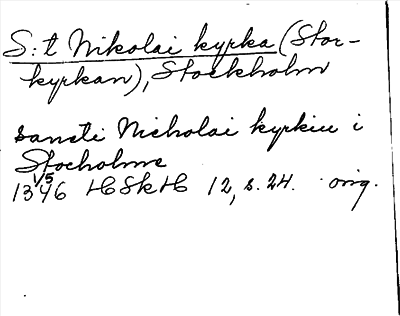 S:t Nikolai kyrka (Stor-
kyrkan), Stockholm
sancti Nicholai kyrkiu i
Stocholme
13 1/5 46 HSkH 12, s. 24. orig.